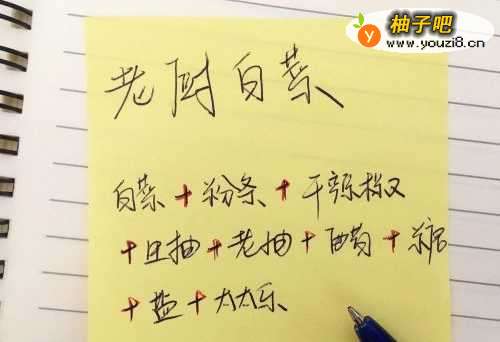 柚子吧
www.youzi8.cn
老厨白菜
白菜+粉条+干辣椒
+生抽+老抽+醋+糖
+盐+太太乐